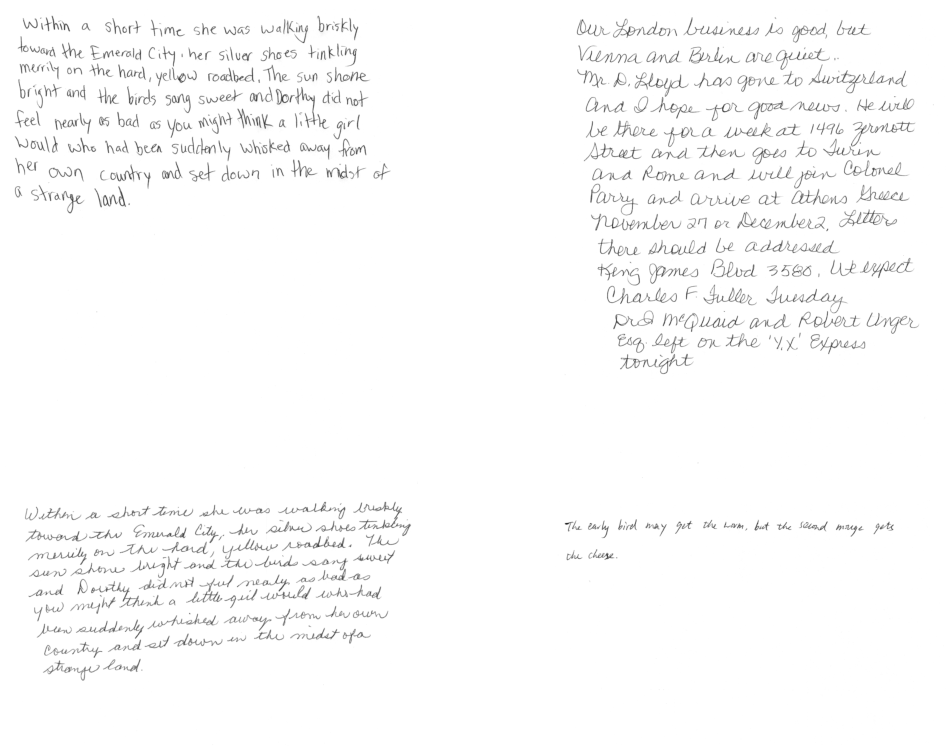 Within a short time she was walking briskly
toward the Emerald City, her silver shoes tinkling
merrily on the hard, yellow roadbed. The sun shone
bright and the birds sang sweet and Dorthy did not
feel nearly as bad as you might think a little girl
would who had been suddenly whisked away from
her own country and set down in the midst of
a strange land.
Our London business is good, but
Vienna and Berlin are quiet..
Mr. D. Lloyd has gone to Switzerland
and I hope for good news. He will
be there for a week at 1496 Zermott
Street and then goes to Turin
and Rome and will join Colonel
Parry and arrive at Athens Greece
November 27 or December 2. Letters
there should be addressed
King James Blvd 3580. We expect
Charles F. Fuller Tuesday
Dr McQuaid and Robert Unger
Esq. left on the 'Y.X' Express
tonight
Within a short time she was walking briskly
toward the Emerald City, her silver shoes tinkling
merrily on the hard, yellow roadbed. The
sun shone bright and the birds sang sweet
and Dorothy did not feel nearly as bad as
you might think a little girl would who had
been suddenly whisked away from her own
country and set down in the midst of a
strange land.
The early bird may get the worm, but the second mouse gets
the cheese.